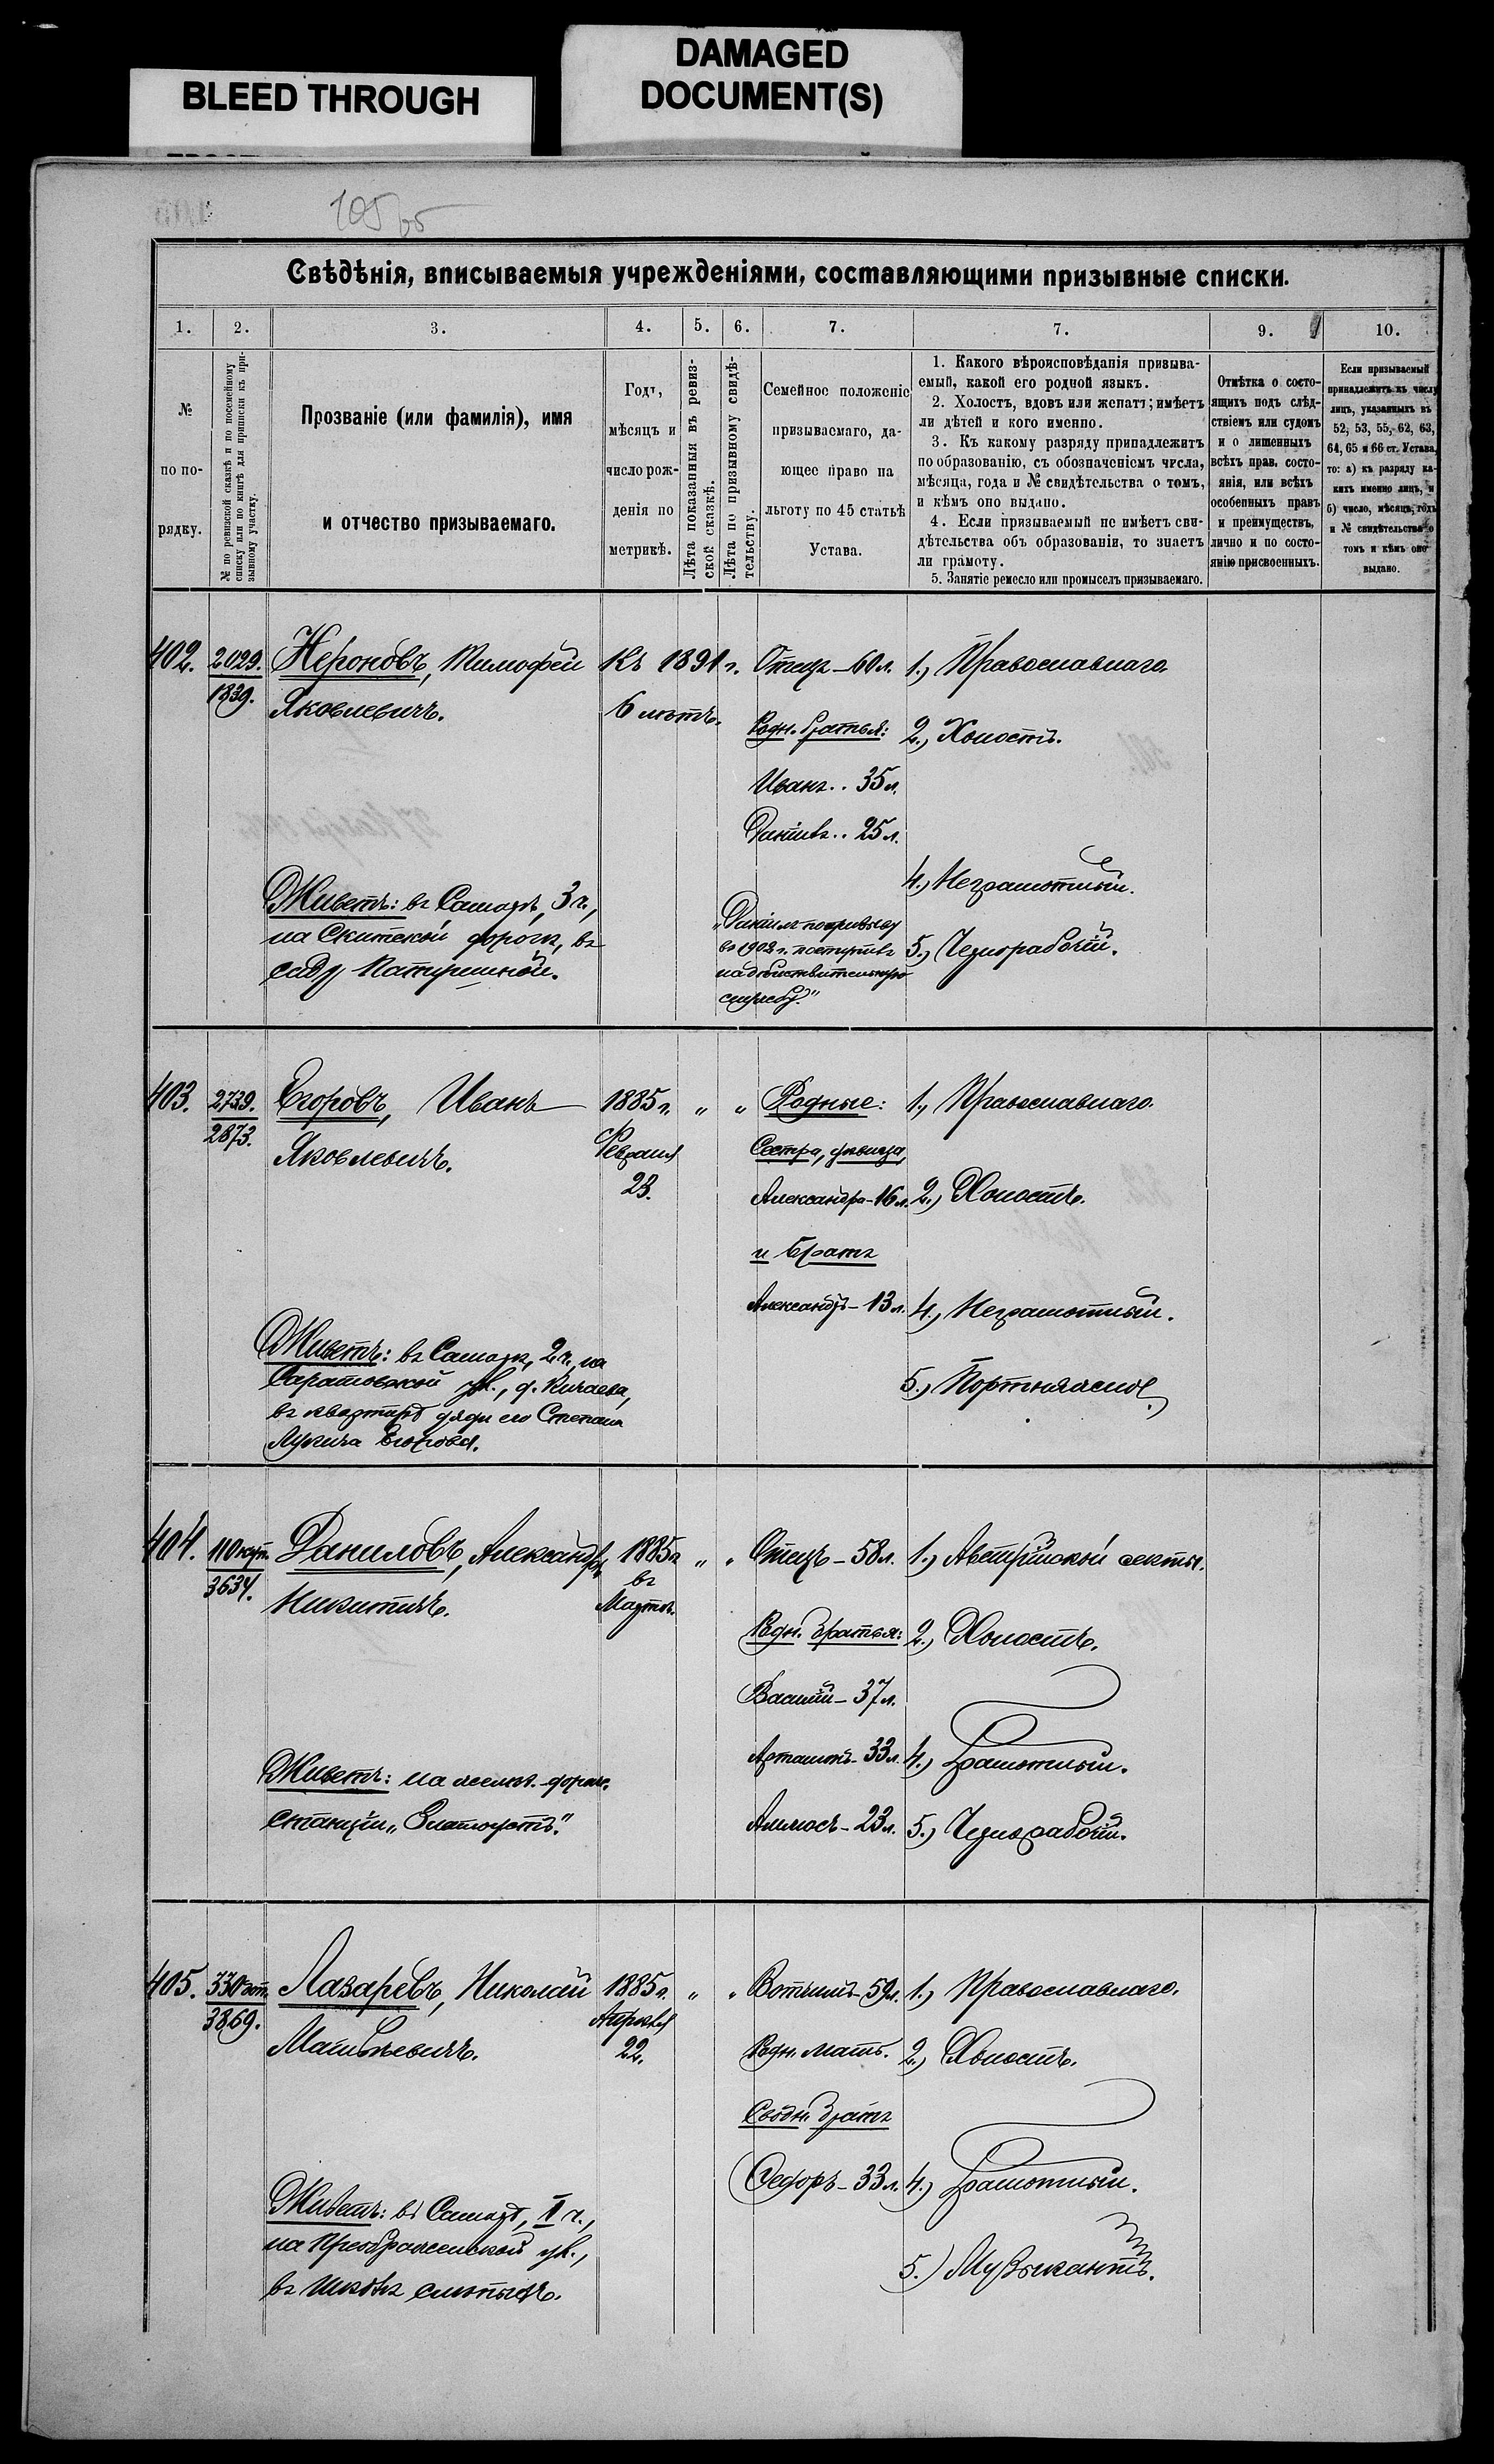 BLEED THROUGH
DAMAGED
DOCUMENT(S)
105 об
Свѣдѣнія, вписываемыя учрежденіями, составляющими призывные списки.
1. 2. 3. 4. 5. 6. 7. 7. 9. 10.
№
по по-
рядку.
№ по ревизской сказкѣ и по посемейному
списку или по книгѣ для приписки къ при-
зывному участку.
Прозваніе (или фамилія), имя
и отчество призываемаго.
Годъ,
мѣсяцъ и
число рож-
денія по
метрикѣ.
Лѣта показанныя въ ревиз-
ской сказкѣ.
Лѣта по призывному свидѣ-
тельству.
Семейное положеніе
призываемаго, да-
ющее право на
льготу по 45 статьѣ
Устава.
1. Какого вѣроисповѣданія призыва-
емый, какой его родной языкъ.
2. Холостъ, вдовъ или женатъ; имѣетъ
ли дѣтей и кого именно.
3. Къ какому разряду принадлежитъ
по образованію, съ обозначеніемъ числа,
мѣсяца, года и № свидѣтельства о томъ,
и кѣмъ оно выдано.
4. Если призываемый не имѣетъ сви-
дѣтельства объ образованіи, то знаетъ
ли грамоту.
5. Занятіе ремесло или промыселъ призываемаго.
Отмѣтка о состо-
ящихъ подъ слѣд-
ствіемъ или судомъ
и о лишенныхъ
всѣхъ прав. состо-
янія, или всѣхъ
особенныхъ правъ
и преимуществъ,
лично и по состо-
янію присвоенныхъ.
Если призываемый
принадлежитъ къ числу
лицъ, указанныхъ въ
52, 53, 55, 62, 63,
64, 65 и 66 ст. Устава,
то: а) къ разряду ка-
кихъ именно лицъ, и
б) число, мѣсяцъ, годъ
и № свидѣтельства о
томъ и кѣмъ оно
выдано.
402. 2029. Нероновъ, Тимофей Къ 1891 г. Отецъ – 60 л. 1.) Православнаго.
1839. Яковлевичъ. 6 лѣтъ.
Родн. братья: 2.) Холостъ.
Иванъ.. 35 л.
Даніилъ.. 25 л.
4.) Неграмотный.
Живетъ: въ Самарѣ, 3 ч.,
на Скитской дорогѣ, въ
саду
„Даніилъ по призыву
въ 1902 г. поступилъ
на дѣйствительную
службу."
5.) Чернорабочій.
403. 2739. Егоровъ, Иванъ 1885 г. „ „ Родные: 1.) Православнаго.
2873. Яковлевичъ. Февраля
23.
Сестра, дѣвица,
Александра – 16 л. 2.) Холостъ.
и братъ
Александръ – 13 л. 4.) Неграмотный.
Живетъ: въ Самарѣ, 2 ч., на
Саратовской ул., д.
въ квартирѣ дяди его Степана
Лукича Егорова.
5.) Портняжное.
404. 110 куп. Даниловъ, Александръ 1885 г. „ „ Отецъ – 58 л. 1.) Австрійской секты.
3634. Никитичъ. въ
Мартѣ.
Родн. братья: 2.) Холостъ.
Василій – 37 л.
33 л. 4.) Грамотный.
23 л. 5.) Чернорабочій.
Живетъ: на желѣз.-дорож.
станціи „Златоустъ".
405. 330 Лазаревъ, Николай 1885 г. „ „ Вотчимъ – 59 л. 1.) Православнаго.
3869. Матвѣевичъ. Апрѣля
22.
Родн. мать. 2.) Холостъ.
Сводн. братъ
Ѳедоръ – 33 л. 4.) Грамотный.
Живетъ: въ Самарѣ, II ч.,
на Преображенской ул.,
въ школѣ слѣпыхъ.
5.) Музыкантъ.